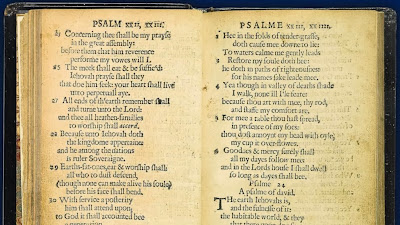 PSALM xxii, xxiii.
25 Concerning thee shall be my praise
in the great assembly:
before them that him reverence
performe my vowes will I.
26 The meek shall eat & be suffic'd:
Iehovah prayse shall they
that doe him seek: your heart shall live
unto perpetuall aye.
27 All ends of th'earth remember shall
and turne unto the Lord:
and thee all heathen-families
to worship shall accord.
28 Because unto Iehovah doth
the kingdome appertaine:
and he among the nations
is ruler Soveraigne.
29 Earths-fat-ones, eat & worship shall:
all who to dust descend,
(though none can make alive his soule)
before his face shall bend.
30 With service a posterity
him shall attend upon;
to God it shall accounted bee
a
PSALME xxiii, xxiiii.
2 Hee in the folds of tender-grasse,
doth cause mee downe to lie:
To waters calme me gently leads
3 Restore my soule doth hee:
he doth in paths of righteousnes
for his names sake leade mee.
4 Yea though in valley of deaths shade
I walk, none ill I'le feare:
because thou art with mee, thy rod,
and staffe my comfort are.
5 For mee a table thou hast spread,
in presence of my foes:
thou dost annoynt my head with oyle,
my cup it over-flowes.
6 Goodnes & mercy surely shall
all my dayes follow mee:
and in the Lords house I shall dwell
so long as dayes shall bee.
Psalme 24
A psalme of david.
THe earth Iehovahs is,
and the fulnesse of it:
the habitable world, & they
that there upon